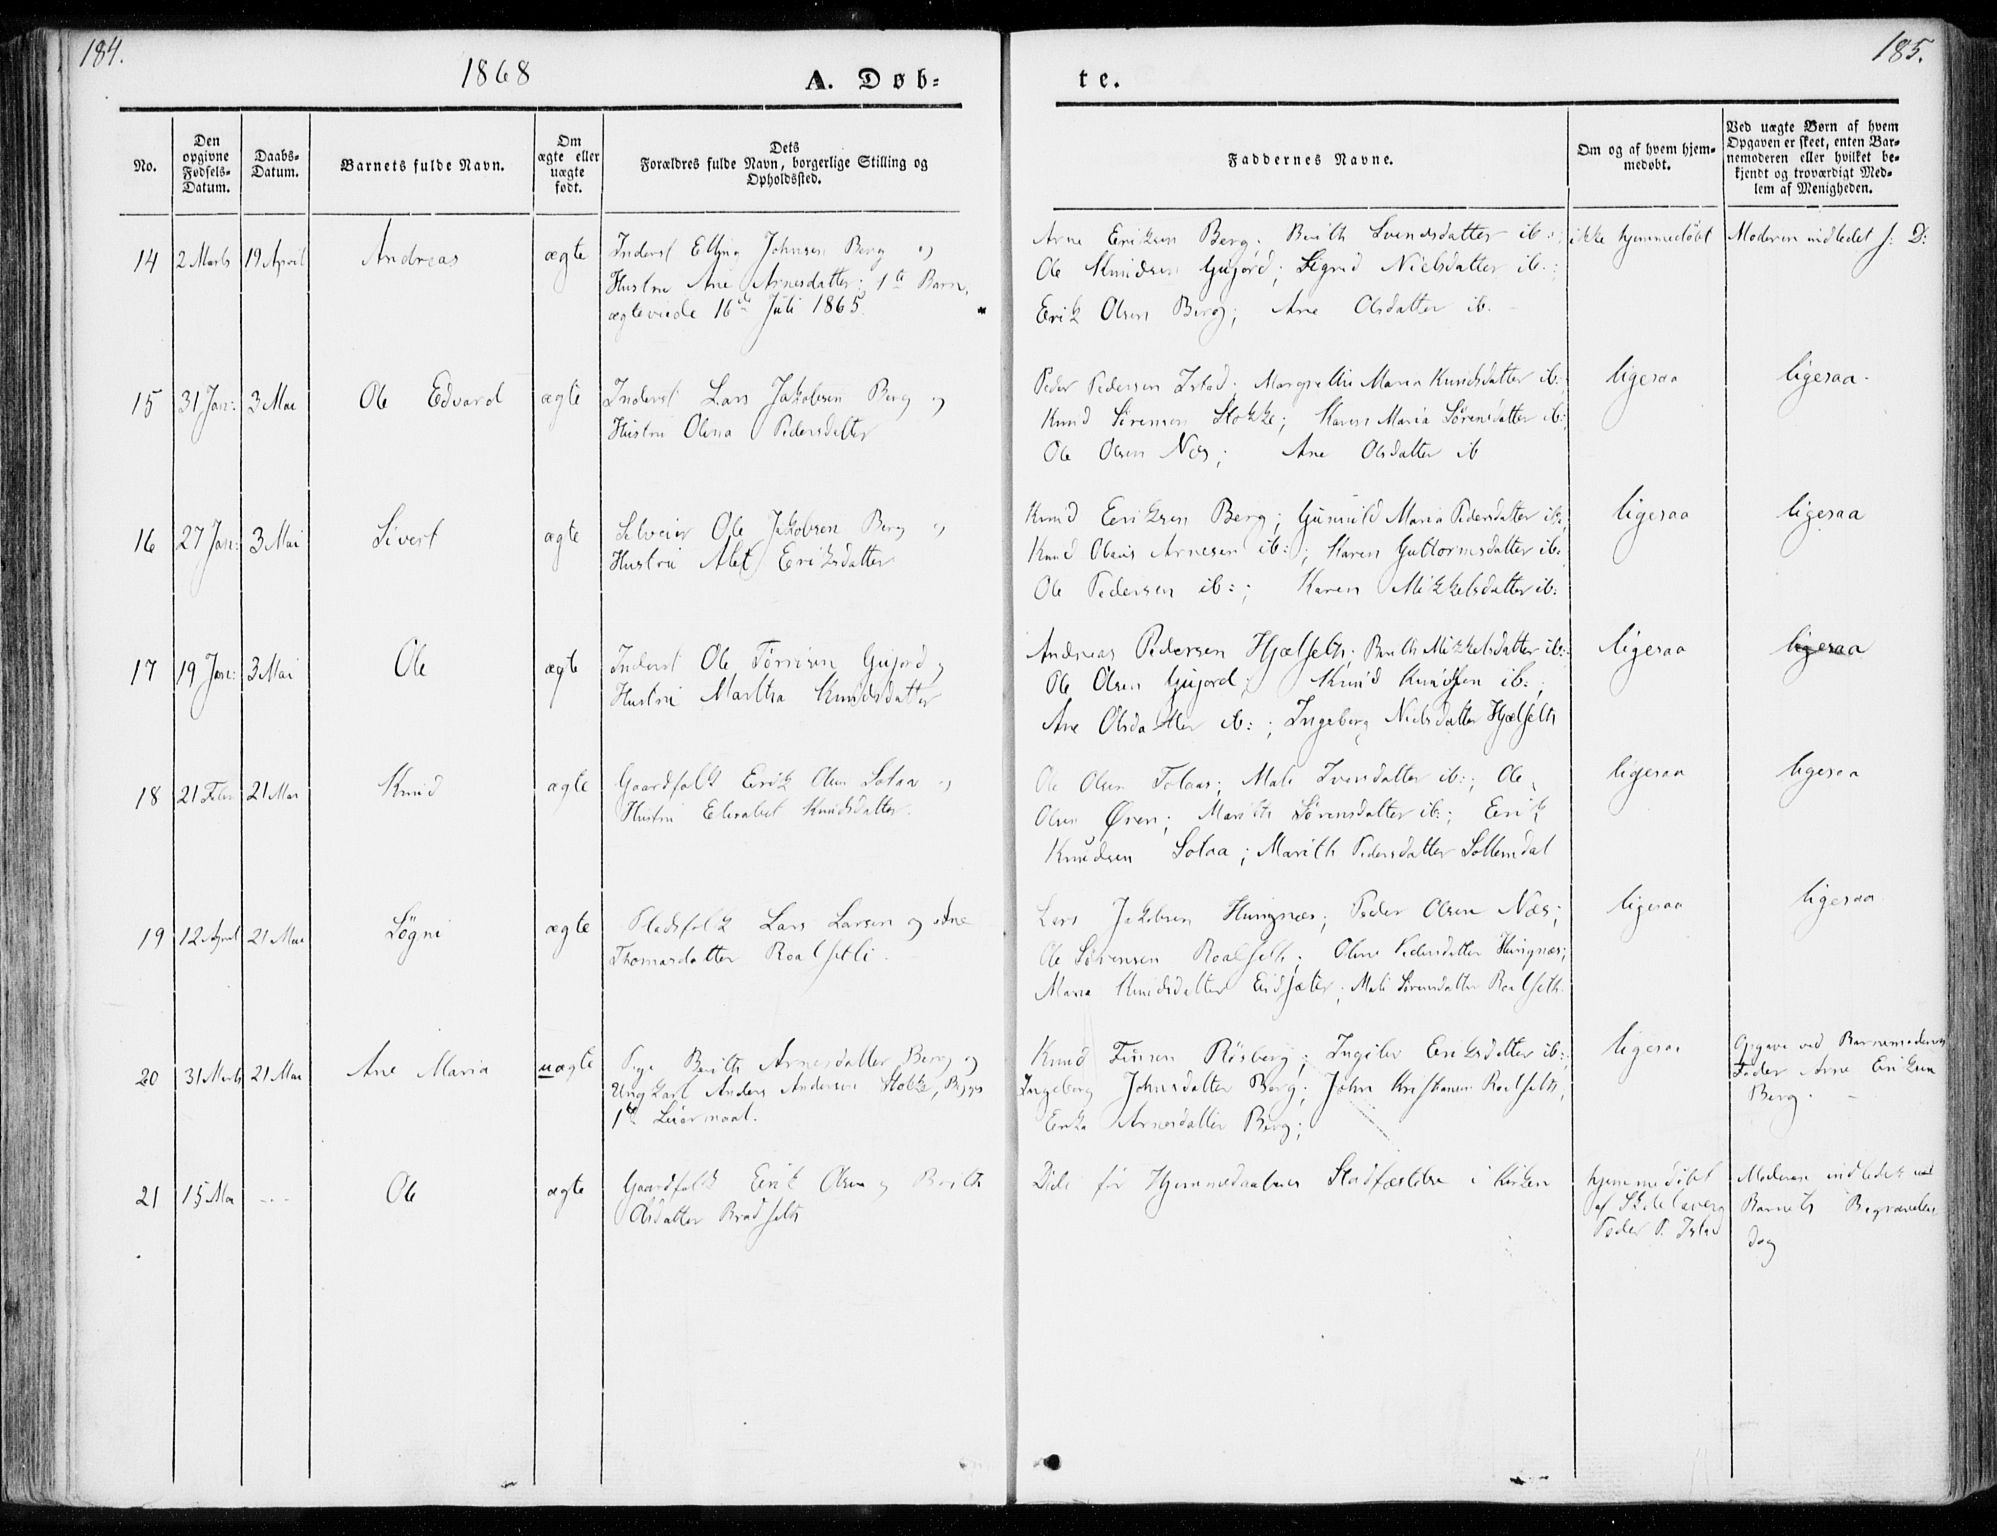 184.
1868
A. Døb=
te.
185.
No.
Den opgivne Fødsels-Datum.
Daabs-Datum.
Barnets fulde Navn.
Om ægte eller uægte født.
Dets Forældres fulde Navn, borgerlige Stilling og Opholdssted.
Faddernes Navne.
Om og af hvem hjemmedøbt.
Ved uægte Børn af hvem Opgaven er skeet, enten Barnemoderen eller hvilket bekjendt og troværdigt Medlem af Menigheden.
14 2 Marts 19 April Andreas ægte
Inderst Elling Johnsen Berg og
Hustru Ane Arnesdatter; 1te Barn,
ægteviede 16de Juli 1865.
Arne Eriksen Berg; Berith Svendsdatter ib:;
Ole Knudsen Gujord; Sigrid Nielsdatter ib:;
Erik Olsen Berg; Ane Olsdatter ib.
ikke hjemmedøbt
Moderen indledet s: D:
15 31 Jan: 3 Mai Ole Edvard ægte
Inderst Lars Jakobsen Berg og
Hustru Olina Pedersdatter
Peder Pedersen Istad; Margrethe Maria Knudsdatter ib:
Knud Sørensen Stokke; Karen Maria Sörensdatter ib:;
Ole Olsen Næs; Ane Olsdatter ib
ligesaa
ligesaa.
16 27 Jan: 3 Mai Sivert ægte
Selveier Ole Jakobsen Berg og
Hustru Alet Eriksdatter
Knud Eriksen Berg; Gunnild Maria Pedersdatter ib:;
Knud Olaus Arnesen ib:; Karen Guttormsdatter ib:
Ole Pedersen ib:; Karen Mikkelsdatter ib:
ligesaa
ligesaa
17 19 Jan: 3 Mai Ole ægte
Inderst Ole Tørrisen Gujord og
Hustru Martha Knudsdatter
Andreas Pedersen Hjælseth; Berith Mikkelsdatter ib:
Ole Olsen Gujord; Knud Knudsen ib:;
Ane Olsdatter ib:; Ingeborg Nielsdatter Hjælseth
ligesaa
ligesaa
18 21 Febr 21 Mai Knud ægte
Gaardfolk Erik Olsen Solaa og
Hustru Elisabet Knudsdatter.
Ole Olsen Tolaas; Mali Iversdatter ib:; Ole
Olsen Øren; Marith Sörensdatter ib:; Erik
Knudsen Solaa; Marith Pedersdatter Sollemdal
ligesaa
ligesaa
19 12 April 21 Mai Lögni ægte
Pladsfolk Lars Larsen og Ane
Thomasdatter Roalsetli.
Lars Jakobsen Hungnæs; Peder Olsen Næs;
Ole Sörensen Roalseth; Oline Pedersdatter Hungnæs;
Maria Knudsdatter Eidsæter; Mali Sörensdatter Roalseth.
ligesaa
ligesaa
20 31 Marts 21 Mai Ane Maria uægte
Pige Berith Arnesdatter Berg og
Ungkarl Anders Andersen Stokke, Begges
1te Leiermaal.
Knud Finsen Rösberg; Ingelev Eriksdatter ib:;
Ingeborg Johnsdatter Berg; John Kristiansen Roalseth;
Erika Arnesdatter Berg;
ligesaa
Opgave ved Barnemoderens
Fader Arne Eriksen
Berg.
21 15 Mai ... Ole ægte
Gaardfolk Erik Olsen og Berith
Olsdatter Bradseth
Døde før Hjemmedaabens Stadfæstelse i Kirken
hjemmedöbt
af Skolelærer
Peder P. Istad
Moderen indledet ved
Barnets Begravelses
dag